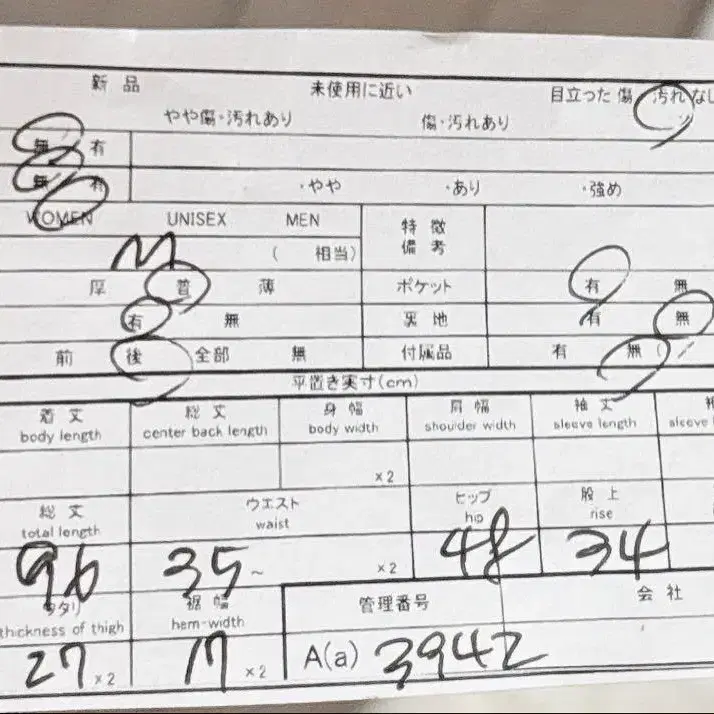 新品 未使用に近い 目立った傷 汚れなし
やや傷・汚れあり 傷・汚れあり
無 有
無 有 ・やや ・あり ・強め
WOMEN UNISEX MEN 特徴
備考
M ( 相当)
厚 普 薄 ポケット 有 無
有 無 裏地 有 無
前 後 全部 無 付属品 有 無 (
平置き実寸(cm)
着丈 総丈 身幅 肩幅 袖丈
body length center back length body width shoulder width sleeve length sleeve
×2
総丈 ウエスト ヒップ 股上
total length waist hip rise
96 35~ ×2 48 34
ワタリ 裾幅 管理番号 会社
thickness of thigh hem-width
27 ×2 17 ×2 A(a) 3942